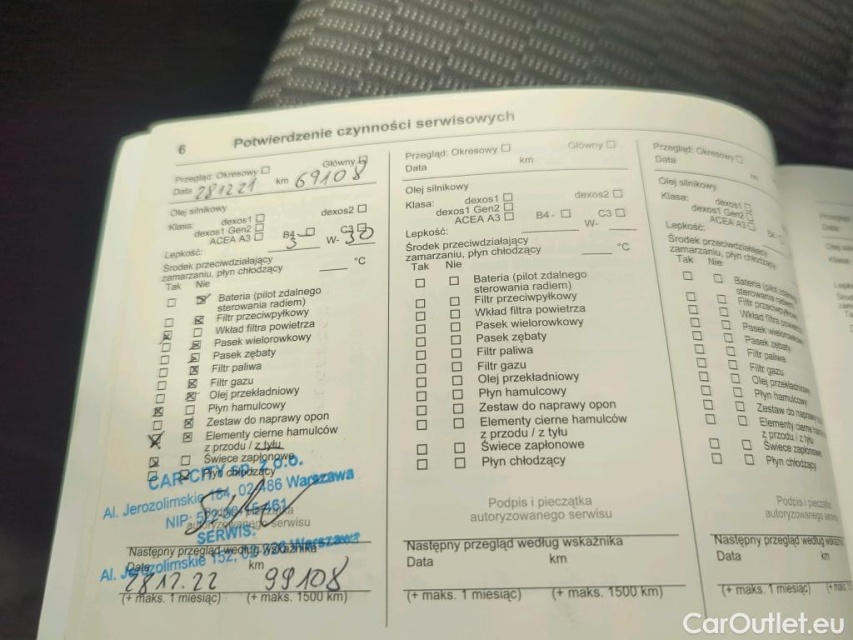 6 Potwierdzenie czynności serwisowych
Przegląd: Okresowy Główny
Data 281221 km 69108
Olej silnikowy
Klasa: dexos1 dexos2
dexos1 Gen2
ACEA A3 B4- C3
Lepkość: 5 W- 30
Środek przeciwdziałający
zamarzaniu, płyn chłodzący °C
Tak Nie
Bateria (pilot zdalnego
sterowania radiem)
Filtr przeciwpyłkowy
Wkład filtra powietrza
Pasek wielorowkowy
Pasek zębaty
Filtr paliwa
Filtr gazu
Olej przekładniowy
Płyn hamulcowy
Zestaw do naprawy opon
Elementy cierne hamulców
z przodu / z tyłu
Świece zapłonowe
Płyn chłodzący
CAR-CITY sp. z o.o.
Al. Jerozolimskie 02-486 Warszawa
NIP:
autoryzowanego serwisu
SERWIS:
Al. Jerozolimskie 152, Warszawa
Następny przegląd według wskaźnika
Data km
281222 99108
(+ maks. 1 miesiąc) (+ maks. 1500 km)
Przegląd: Okresowy Główny
Data km
Olej silnikowy
Klasa: dexos1 dexos2
dexos1 Gen2
ACEA A3 B4 - C3
Lepkość: W-
Środek przeciwdziałający
zamarzaniu, płyn chłodzący °C
Tak Nie
Bateria (pilot zdalnego
sterowania radiem)
Filtr przeciwpyłkowy
Wkład filtra powietrza
Pasek wielorowkowy
Pasek zębaty
Filtr paliwa
Filtr gazu
Olej przekładniowy
Płyn hamulcowy
Zestaw do naprawy opon
Elementy cierne hamulców
z przodu / z tyłu
Świece zapłonowe
Płyn chłodzący
Podpis i pieczątka
autoryzowanego serwisu
Następny przegląd według wskaźnika
Data km
(+ maks. 1 miesiąc) (+ maks. 1500 km)
Przegląd: Okresowy
Data
Olej silnikowy
Klasa: dexos1
dexos1 Gen2
ACEA A3
Lepkość:
Środek przeciwdziałający
zamarzaniu, płyn chłodzący
Tak Nie
Bateria (pilot zdalnego
sterowania radiem)
Filtr przeciwpyłkowy
Wkład filtra powietrza
Pasek wielorowkowy
Pasek zębaty
Filtr paliwa
Filtr gazu
Olej przekładniowy
Płyn hamulcowy
Zestaw do naprawy opon
Elementy cierne hamulców
z przodu / z tyłu
Świece zapłonowe
Płyn chłodzący
Podpis i
autoryzowanego
Następny przegląd według
Data km
(+ maks. 1 miesiąc) (+ maks.
CarOutlet.eu